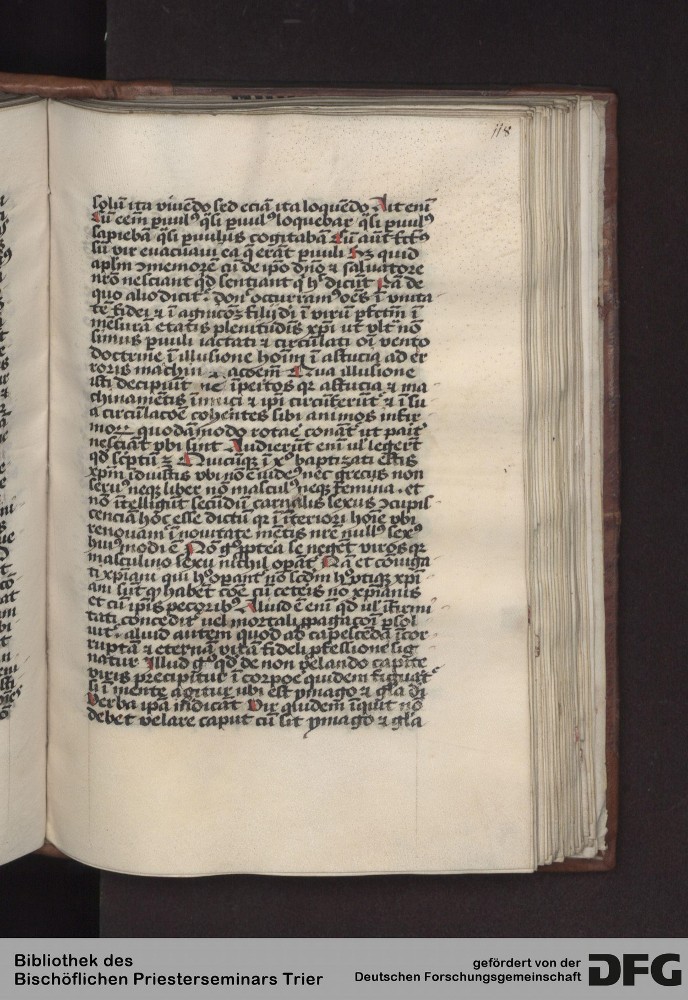 118
solū ita viuēdo sed eciā ita loquēdo Ait enī
Cū eēm ꝑuulꝰ q̄si ꝑuulꝰ loquebar q̄si ꝑuulꝰ
sapiebā q̄si ꝑuulus cogitabā Cū aūt fctꝰ
sū vir euacuaui ea q̄ erāt ꝑuuli Sꝫ quid
aplm ↄmemorē cū de ip̄o dn̄o ⁊ saluatore
nr̄o nesciant qd sentiant q̄ h̄ dicūt Nā de
quo alio dicit donⁱ occurramꝰ oēs ī vnita
tē fidei ⁊ ī agnicōꝫ filij di ī virū ꝑfctm ī
mēsurā etatis plenitudīs xp̄i ut vlt̄ nō
simus ꝑuuli iactati ⁊ circūlati oī vento
doctrine ī illusione hoīm ī astucia ad er
roris machīn acōem Qua illusione
isti decipiūt nē īꝑitos qr astucia ⁊ ma
chinamētis īmici ⁊ ipi circūferūt ⁊ ī su
a circūlacōe cohentes sibi animos infir
moꝝ quodāmodo rotāe conāt̄ ut pait̄
nesciāt vbi sint Audierūt enī ul legerūt
qd scptū ꝫ Quicūqꝫ ī xº baptizati estis
xpm īduistis vbi nō ē iudeꝰ nec grecus non
seruꝰ neqꝫ liber nō masculꝰ neqꝫ femina et
nō ītelligūt secūdū carnalis sexus ↄcupis
cenciā hoc esse dictū qr ī īteriori hoīe vbi
renouam̄ ī nouitate mētis nr̄e nullꝰ sexꝰ
huiꝰmodi ē Nō gº ꝓpt̄ea se neget viros qr
masculino sexu nichil oꝑāt̄ Nā et coniuga
ti xp̄iani qui hº oꝑant̄ nō scdm hº vtiqꝫ xp̄i
ani sūt q̄ habēt cōe cū ceteris nō xp̄ianis
et cū ip̄is pecoribꝰ Aliud ē enī qd ul īfirmi
tati concedit̄ uel mortali ꝓpagacōi ꝑsol
uit̄ aliud autem quod ad capescēdā īcor
ruptā ⁊ eternā vitā fideli ꝓfessione sig
natur Illud gº qd de non velando capite
viris precipitur ī corpoe quidem figurat̄
si ī mente agitur ubi est ymago ⁊ gl̄a di
Verba ipā indicāt Vir quidem īquit nō
debet velare caput cū sit ymago ⁊ gl̄a
Bibliothek des
Bischöflichen Priesterseminars Trier
gefördert von der
Deutschen Forschungsgemeinschaft
DFG